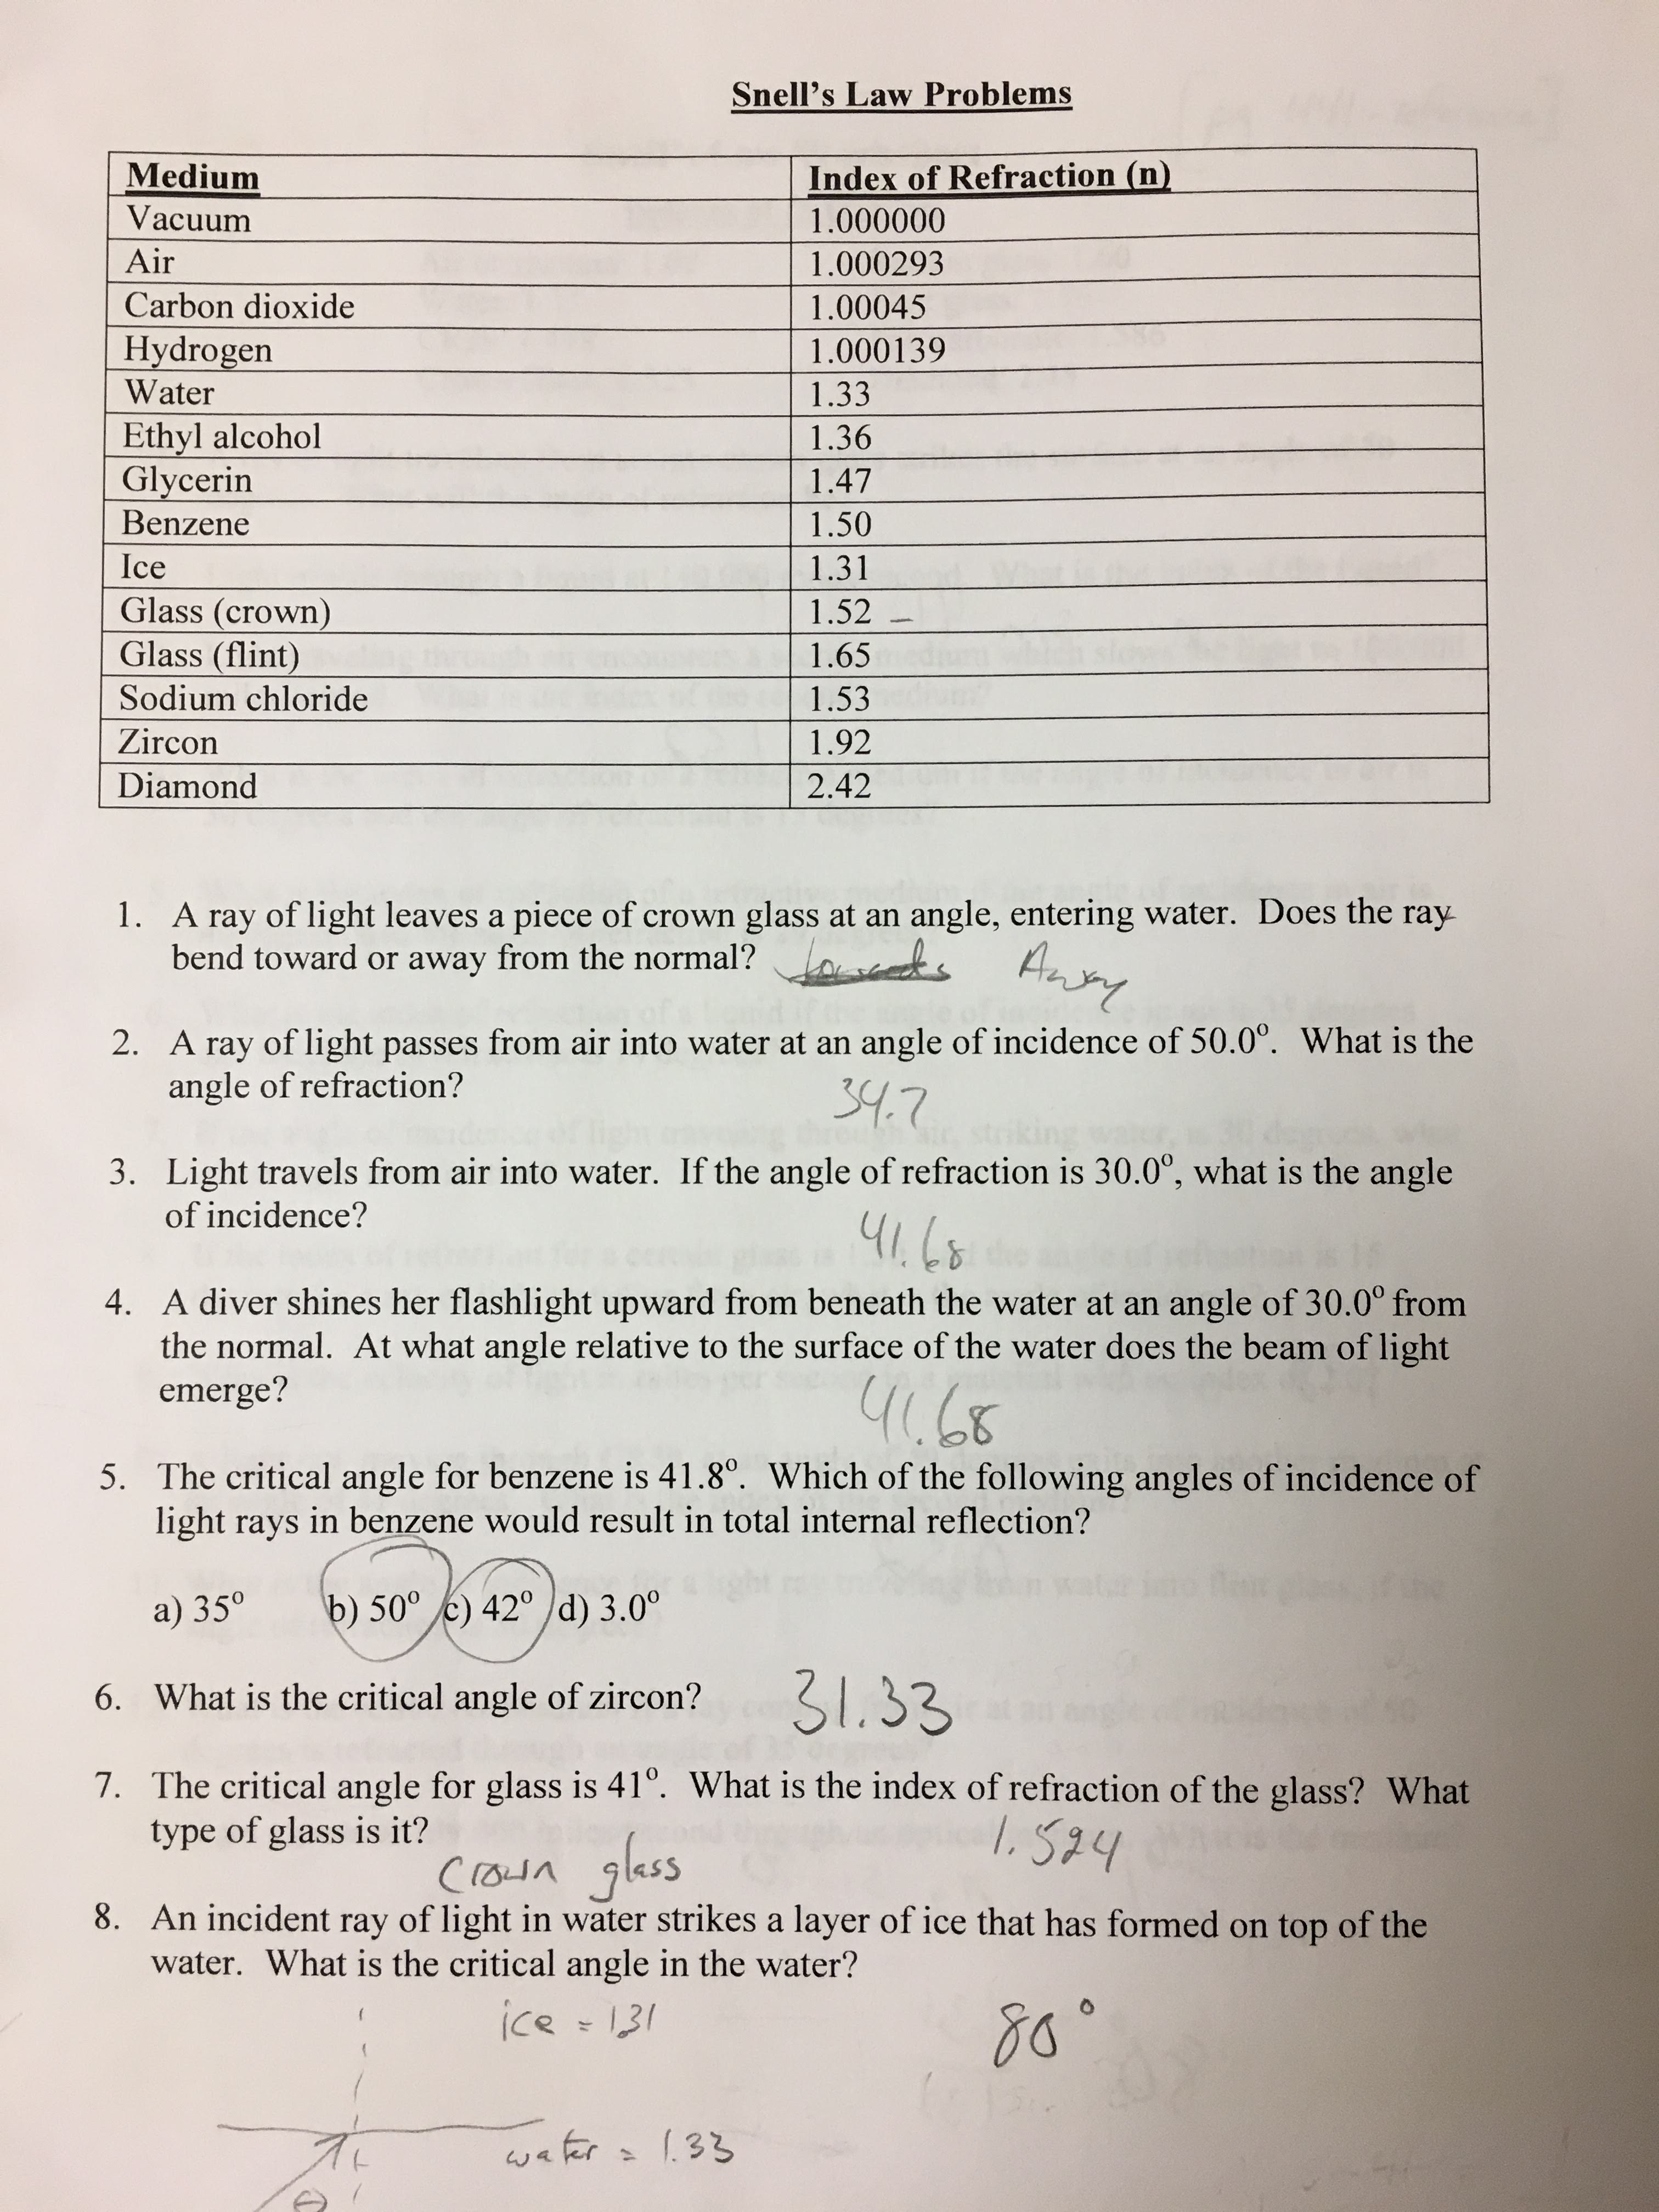 Snell's Law Problems
Medium Index of Refraction (n)
Vacuum 1.000000
Air 1.000293
Carbon dioxide 1.00045
Hydrogen 1.000139
Water 1.33
Ethyl alcohol 1.36
Glycerin 1.47
Benzene 1.50
Ice 1.31
Glass (crown) 1.52 –
Glass (flint) 1.65
Sodium chloride 1.53
Zircon 1.92
Diamond 2.42
1. A ray of light leaves a piece of crown glass at an angle, entering water. Does the ray
bend toward or away from the normal? towards Away
2. A ray of light passes from air into water at an angle of incidence of 50.0º. What is the
angle of refraction?
34.7
3. Light travels from air into water. If the angle of refraction is 30.0º, what is the angle
of incidence?
41.68
4. A diver shines her flashlight upward from beneath the water at an angle of 30.0º from
the normal. At what angle relative to the surface of the water does the beam of light
emerge?
41.68
5. The critical angle for benzene is 41.8º. Which of the following angles of incidence of
light rays in benzene would result in total internal reflection?
a) 35º b) 50º c) 42º d) 3.0º
6. What is the critical angle of zircon? 31.33
7. The critical angle for glass is 41º. What is the index of refraction of the glass? What
type of glass is it? 1.524
Crown glass
8. An incident ray of light in water strikes a layer of ice that has formed on top of the
water. What is the critical angle in the water?
ice = 1.31 80°
water = 1.33
θ